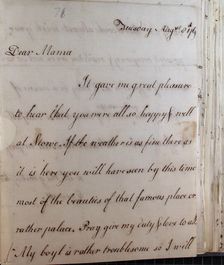 76
Tuesday Augst
Dear Mama
It gave me great pleasure
to hear that you were all so happy & well
at Stowe. If the weather is as fine there as
it is here you will have seen by this time
most of the beauties of that famous place or
rather palace. Pray give my duty & love to all
My boyl is rather troublesome so I will